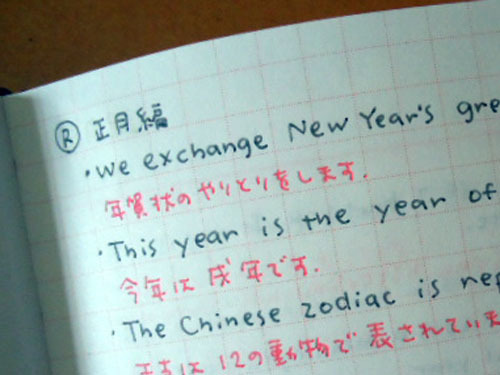 Ⓡ 正月編
・We exchange New Year's gre
年賀状のやりとりをします.
・This year is the year of
今年は戌年です.
・The Chinese zodiac is rep
は12の動物で表されていま